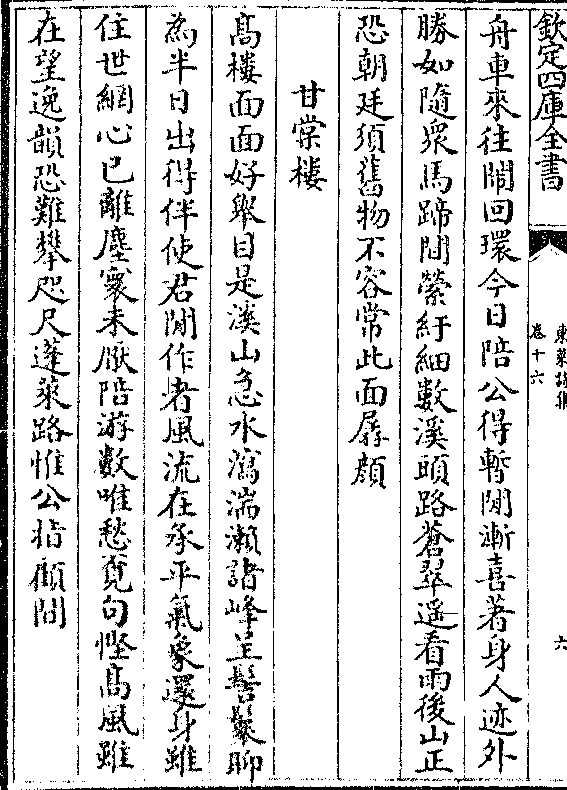 欽定四庫全書
東萊詩集
卷十六
六
舟車來往鬧回環今日陪公得暫閒漸喜著身人迹外
勝如隨衆馬蹄間縈紆細數溪頭路蒼翠遥看雨後山正
恐朝廷須舊物不容常此面孱顔
甘棠樓
髙樓面面好舉目是溪山急水瀉湍瀬諸峰呈髻鬟聊
為半日出得伴使君閒作者風流在承平氣象還身雖
住世網心已離塵寰未厭陪游數唯愁覓句慳髙風雖
在望逸韻恐難攀咫尺蓬萊路惟公指顧間